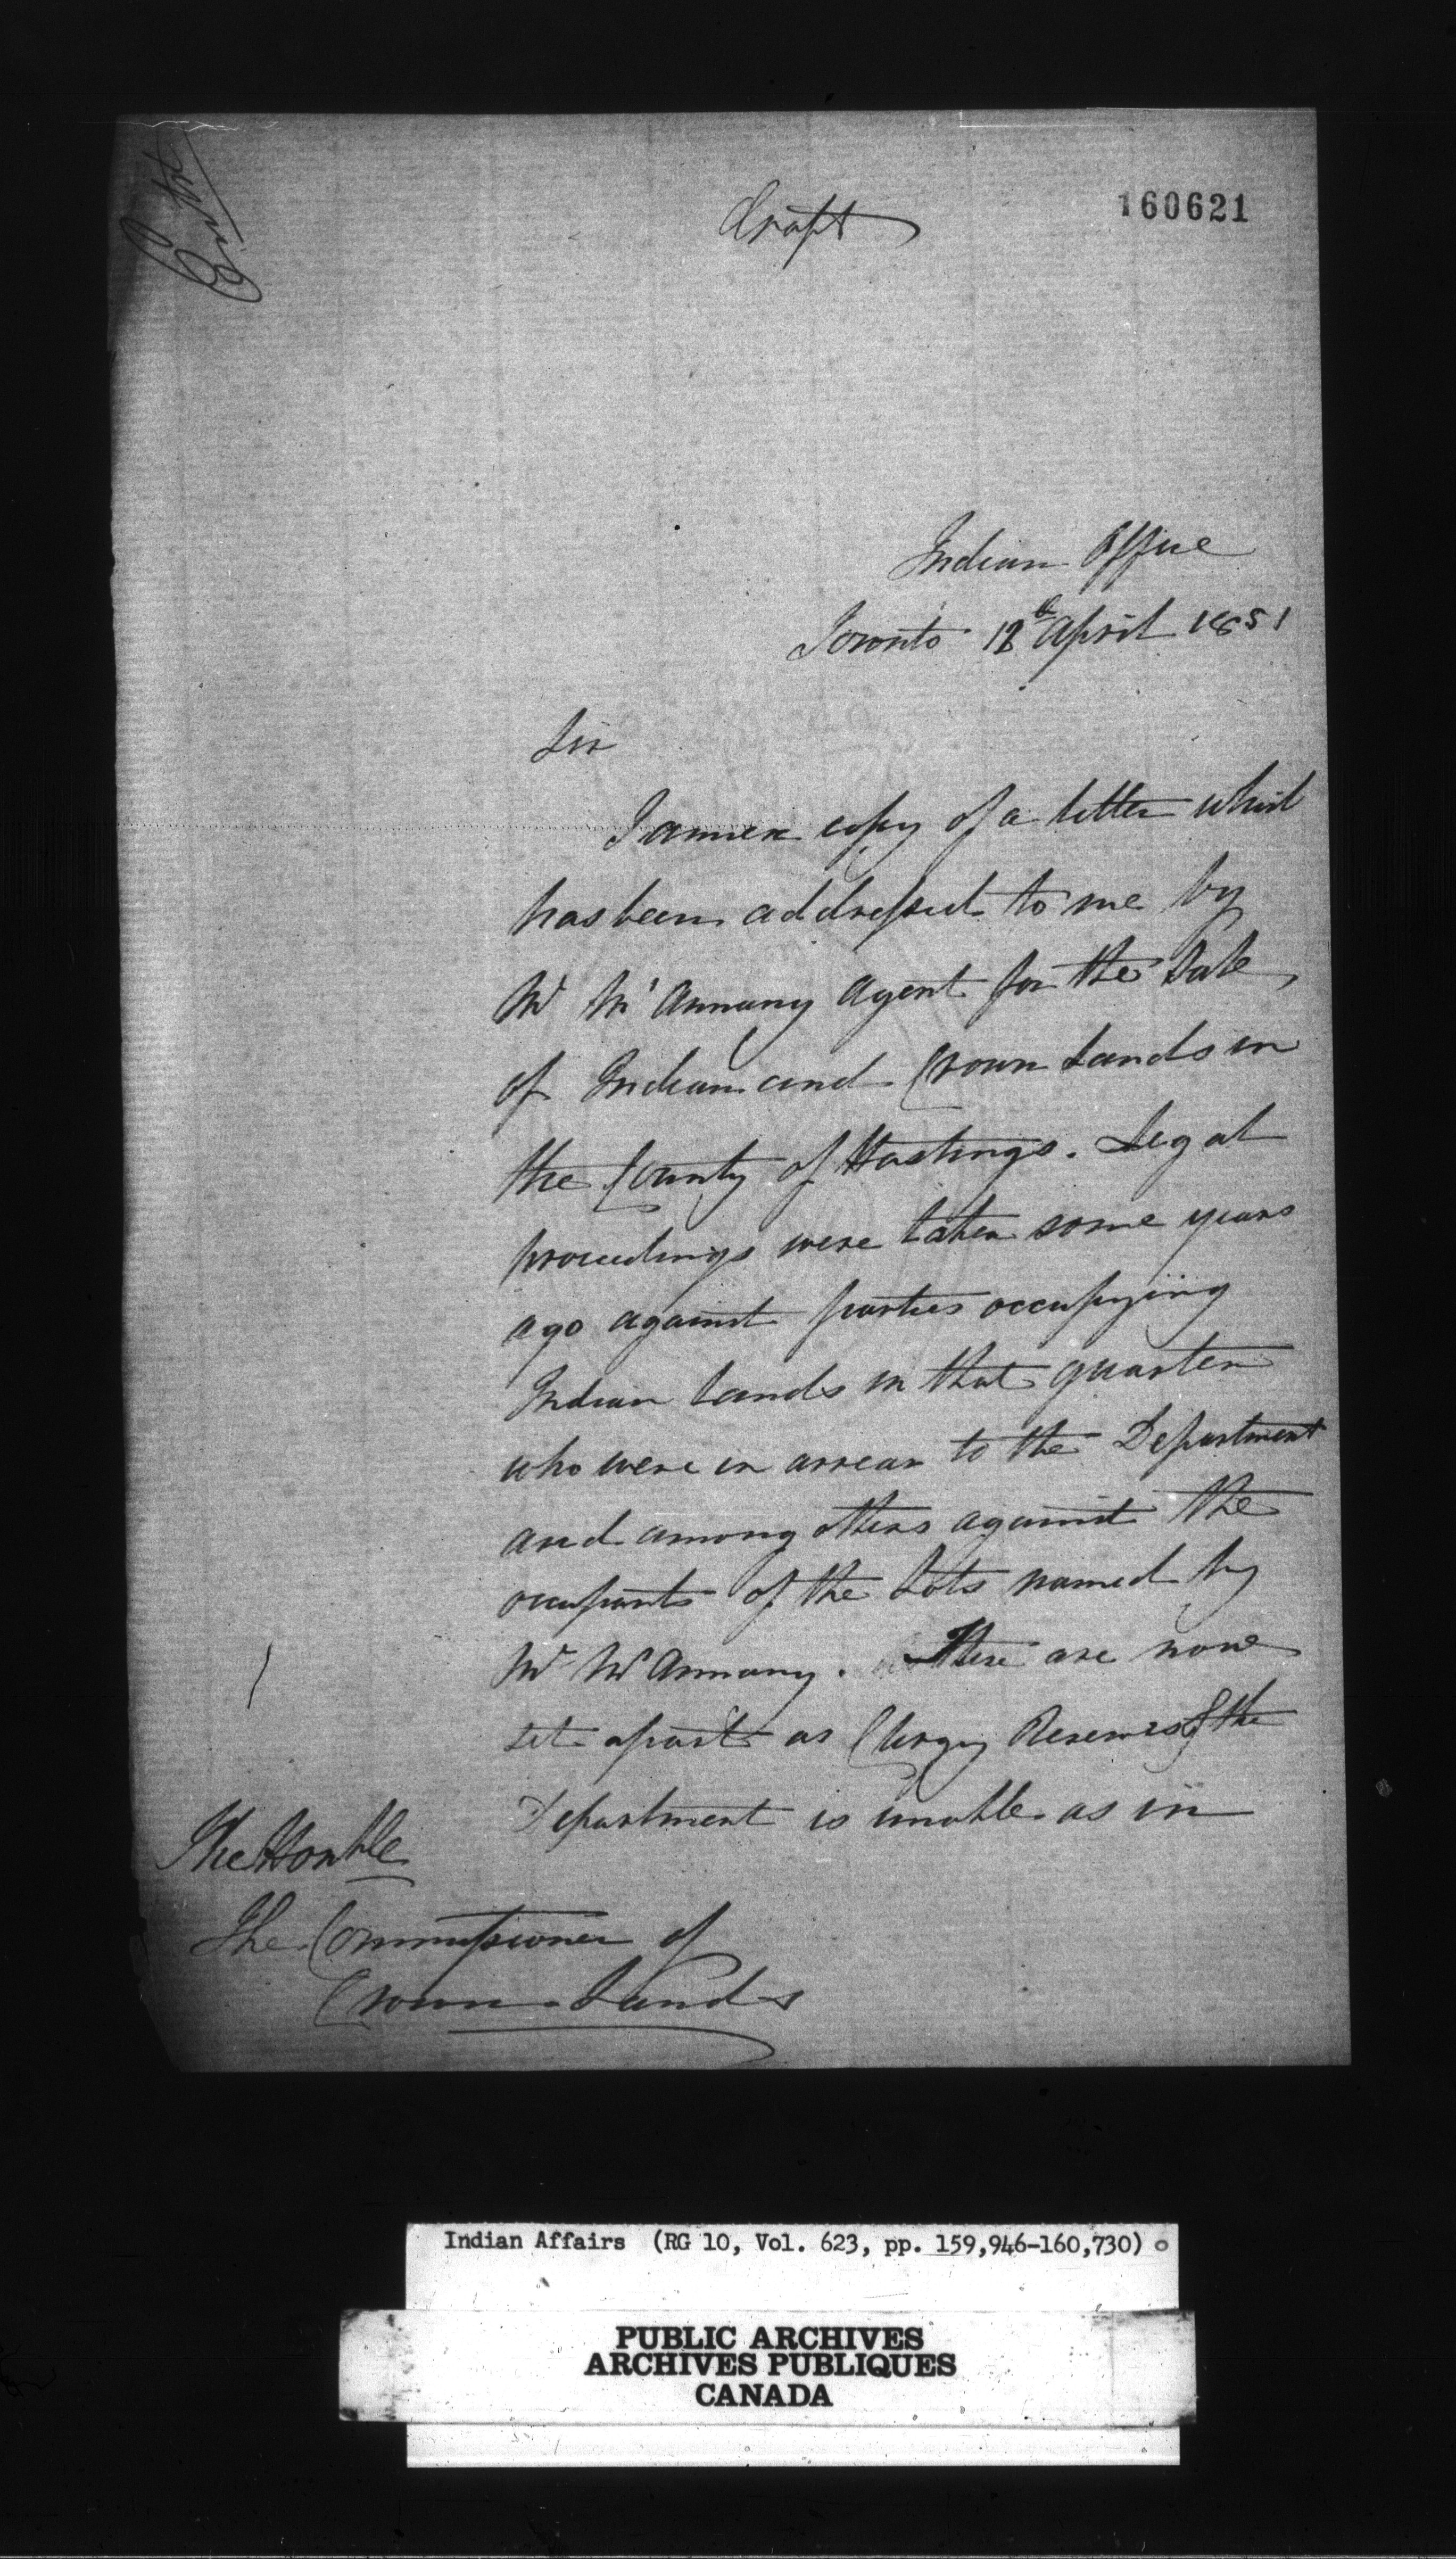 Entd
Draft
160621
Indian Office
Toronto 12th April 1851
Sir
I annex copy of a letter which
has been addressed to me by
Mr McAnnany Agent for the Sale
of Indian and Crown Lands in
the County of Hastings. Legal
proceedings were taken some years
ago against parties occupying
Indian Lands in that quarter
who were in arrear to the Department
and among others against the
occupants of the Lots named by
Mr McAnnany. These are now
set apart as Clergy Reserves & the
Department is unable as in
The Honble
The Commissioner of
Crown Lands
Indian Affairs (RG 10, Vol. 623, pp. 159,946-160,730)
PUBLIC ARCHIVES
ARCHIVES PUBLIQUES
CANADA